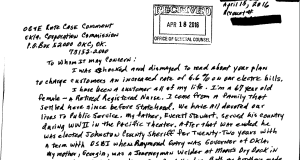 April 16, 2016
RECEIVED
APR 18 2016
OFFICE OF GENERAL COUNSEL
OG&E Rate Case Comment
Okla. Corporation Commission
P.O. Box 52000 OKC, OK.
73152-2000
To Whom It may Concern:
I was shocked and dismayed to read about your plan
to charge customers an increased rate of 6.6% on our electric bills.
I have been a customer all of my life. I'm a 67 year old
female - a Retired Registered Nurse. I come from a family that
settled here since before Statehood. We have all devoted our
lives to Public Service. My father, Everett Stewart, served his country
during WWII in the Pacific Theater, after that was ended he
was elected Johnston County Sheriff for Twenty-Two years with
a term with OSBI when Raymond Gary was Governor of Okla.
My mother, Georgia, was a